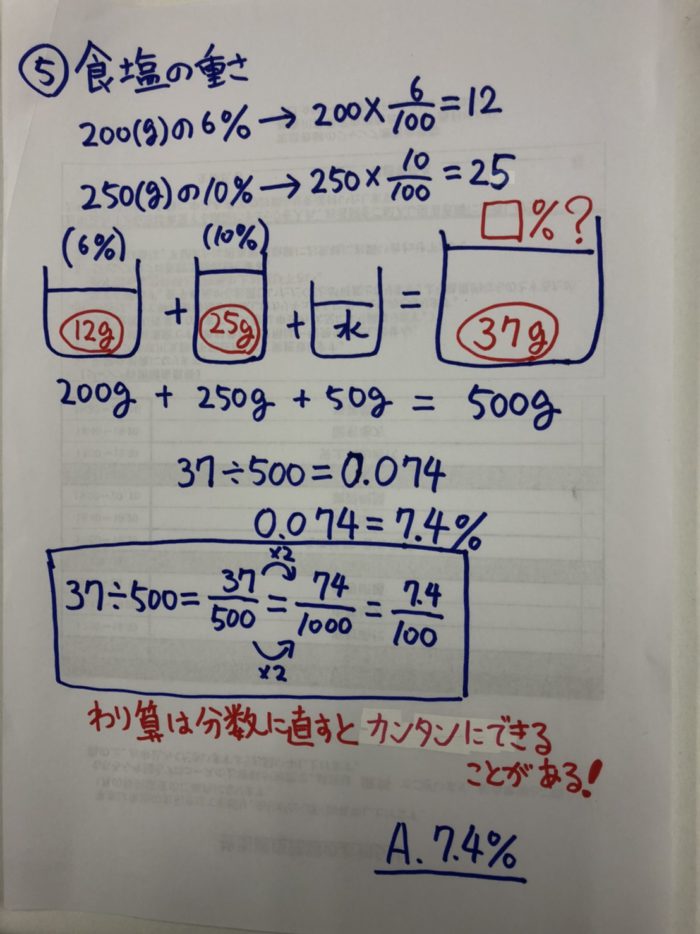 ⑤ 食塩の重さ
200(g)の6% → 200×6/100=12
250(g)の10% → 250×10/100=25
□%?
(6%) (10%)
12g + 25g + 水 = 37g
200g + 250g + 50g = 500g
37÷500=0.074
0.074=7.4%
×2
37÷500=37/500=74/1000=7.4/100
×2
わり算は分数に直すとカンタンにできる
ことがある!
A. 7.4%